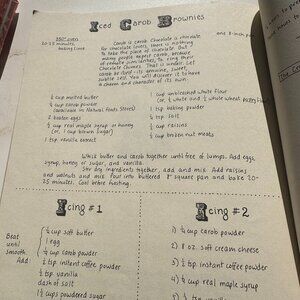 Iced Carob Brownies
350° oven
20-25 minutes,
baking time
8-inch pan
Carob is carob. Chocolate is chocolate.
for chocolate lovers, there is nothing
to take the place of chocolate. But
many people expect carob, because
chocolate chimes. That is unfair. Let
carob be carob - its genuine, sweet,
subtle self. You will discover it to have
a charm and character of its own.
1/2 cup melted butter
1/2 cup carob powder
(available in Natural Foods Stores)
2 beaten eggs
1/2 cup real maple syrup or honey
(or, 1 cup brown sugar)
1 tsp. vanilla extract
1 cup unbleached white flour
(or 1/2 white and 1/2 whole wheat
1 tsp. baking powder
1/2 tsp. salt
1/2 cup raisins
1/2 cup broken nut meats
Whisk butter and carob together until free of lumps. Add eggs,
syrup, honey or sugar, and vanilla.
Stir dry ingredients together, add and mix. Add raisins
and walnuts and mix. Pour into buttered 8" square pan and bake 20-
25 minutes. Cool before frosting.
Icing #1
Beat
until
smooth.
Add
1/4 cup soft butter
1 egg
1/4 cup carob powder
1/2 tsp instant coffee powder
1/2 tsp. vanilla
dash of salt
1 1/2 cups powdered sugar
Icing #2
1) 1/4 cup carob powder
2) 8 oz. soft cream cheese
3) 1/2 tsp. instant coffee powder
4) 1/4 cup real maple syrup
5) 1/2 tsp. vanilla